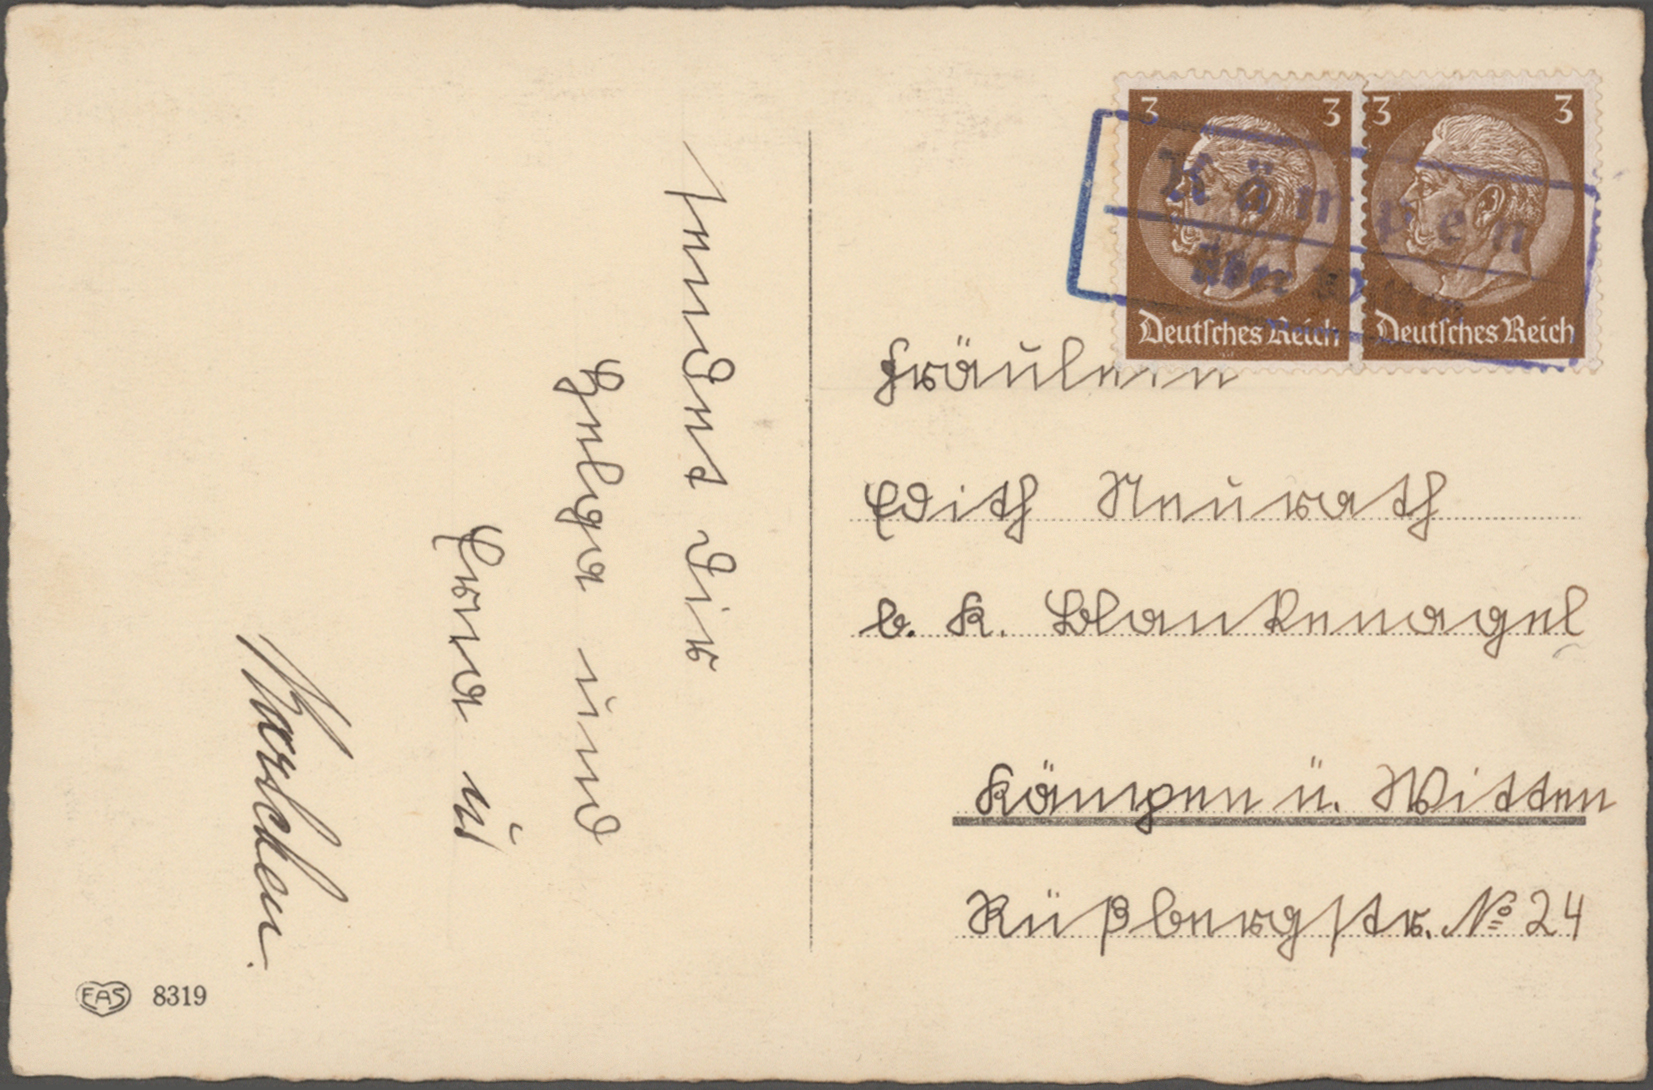 sendet dir
Helga und
Erna u
EAS 8319
3 3 3 3
Kämpen
über Witten
Deutsches Reich Deutsches Reich
Fräulein
Edith Neurath
b. K. Blankenagel
Kämpen ü. Witten
Rüßbergstr. № 24